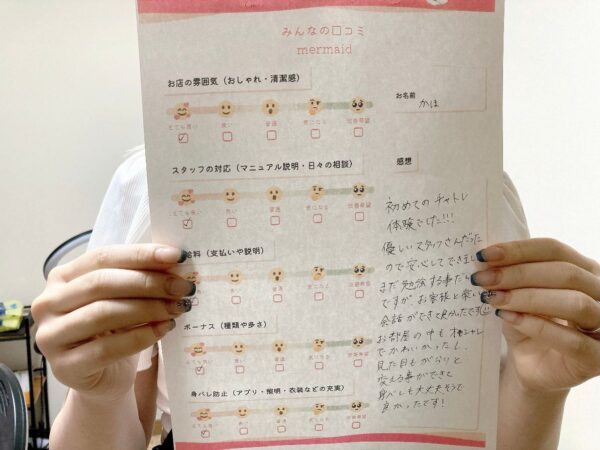 みんなの口コミ
mermaid
お店の雰囲気(おしゃれ・清潔感)
とても良い 良い 普通 気になる 改善希望
スタッフの対応(マニュアル説明・日々の相談)
とても良い 良い 普通 気になる 改善希望
給料(支払いや説明)
良い 普通 気になる 改善希望
ボーナス(種類や多さ)
とても良い 良い 普通 気になる 改善希望
身バレ防止(アプリ・照明・衣装などの充実)
とても良い 良い 普通 気になる 改善希望
お名前
かほ
感想
初めてのチャトレ
体験でした!!!
優しいスタッフさんだった
ので安心してできまし
まだ勉強する事だし
ですがお客様と楽しい
会話ができて良かったです
お部屋の中もオシャレ
でかわいかったし
見た目もがらりと
変える事ができて
身バレも大丈夫そうで
良かったです!